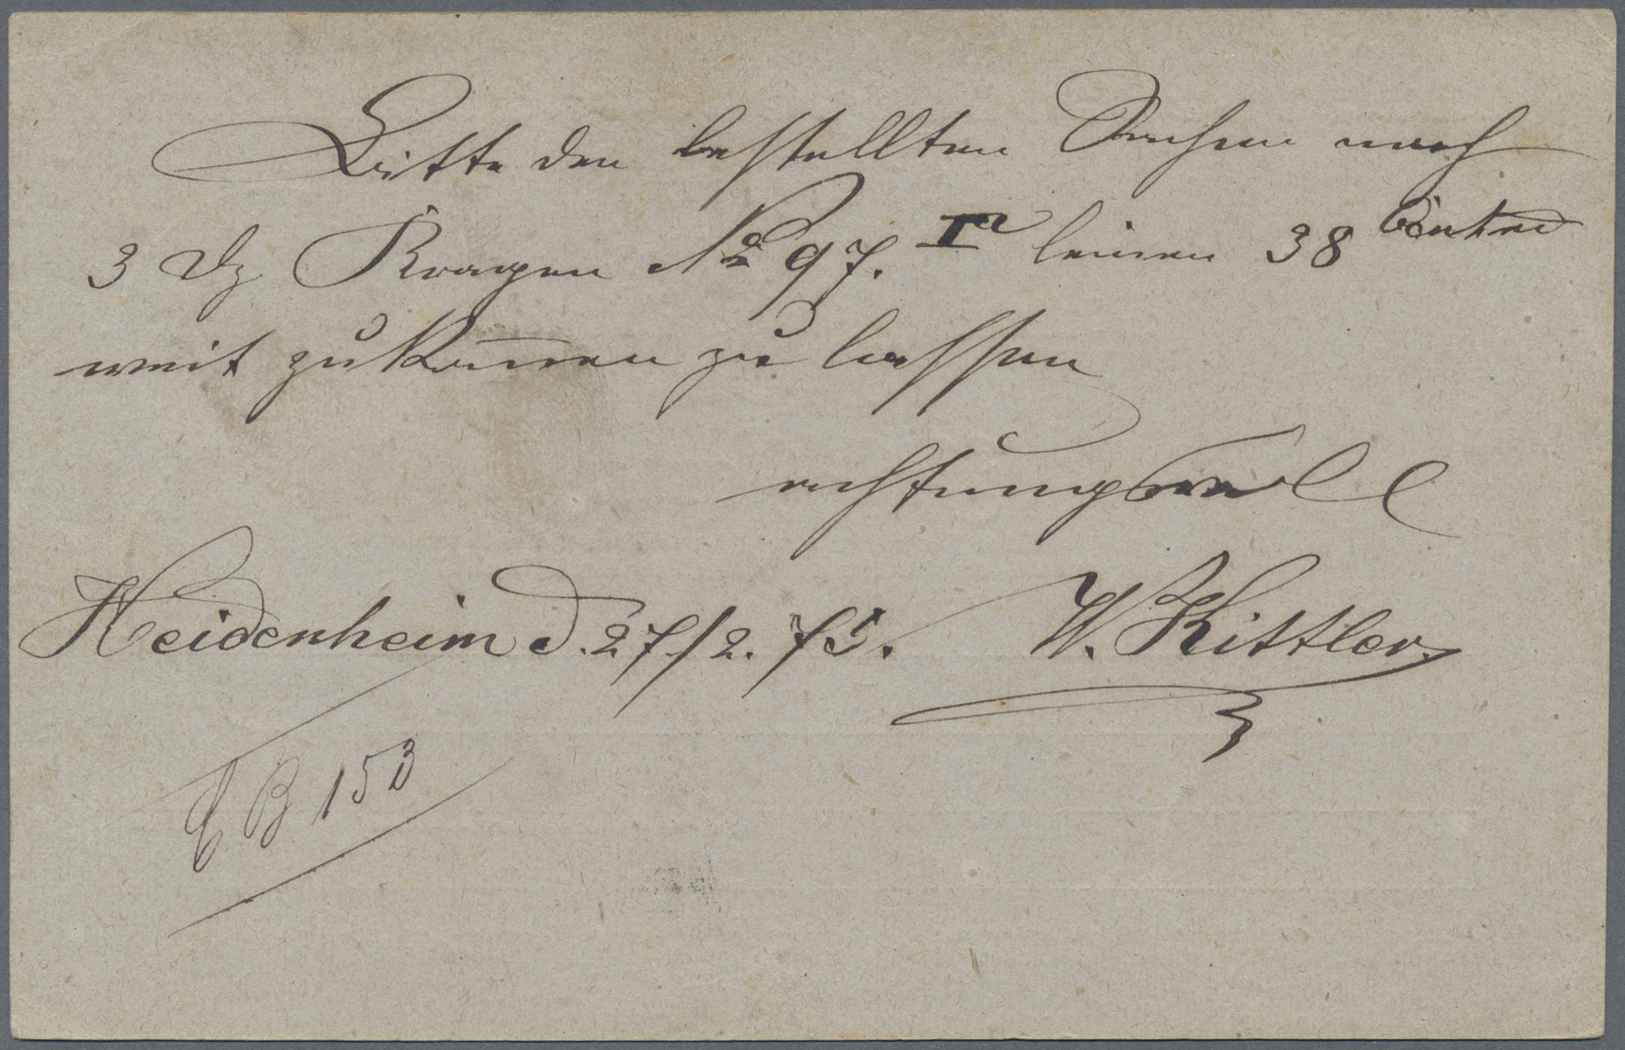 Bitte den bestellten Sachen noch
3 Dz Kragen No 97. Ia leinen 38
weit zukom̄en zu lassen
achtungsvoll
Heidenheim d. 27/2. 75. W. Kittler
B 153